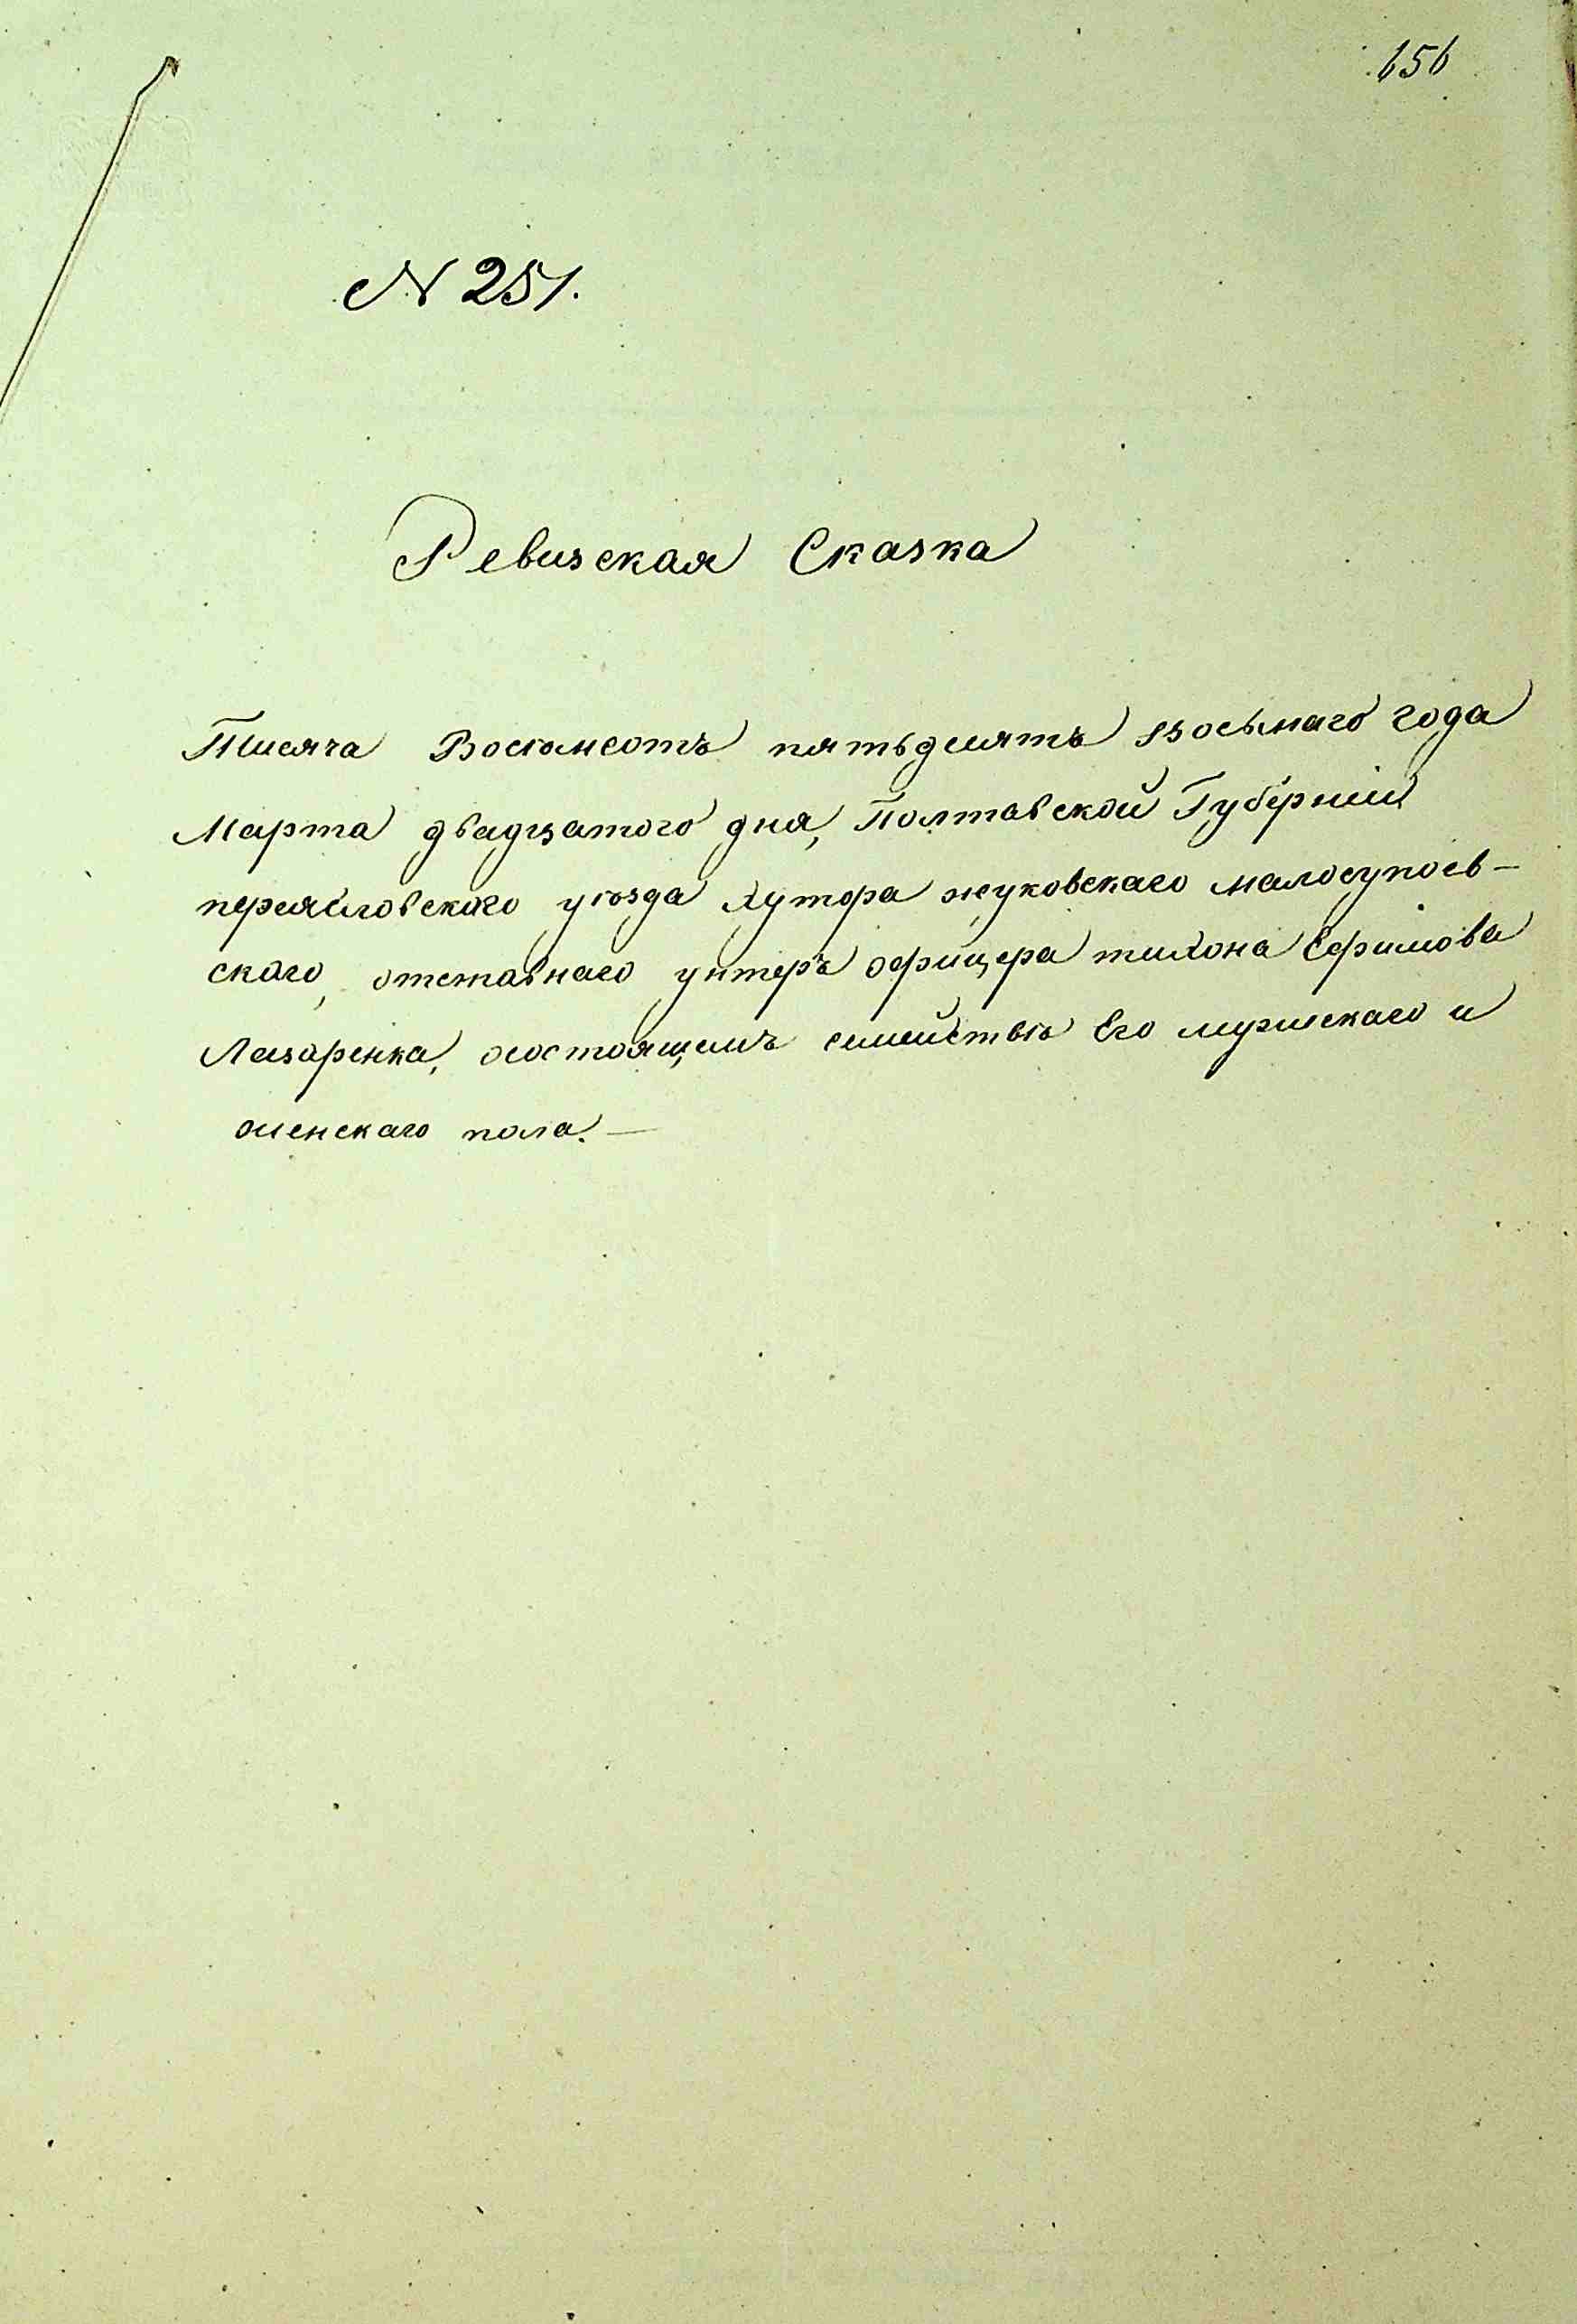 656
N 251.
Ревизская Сказка
Тисяча Восемсотъ пятьдесятъ восьмаго года
Марта двадцатого дня, Полтавской Губерніи
переясловского уѣзда хутора жуковскаго малосупоев-
ского, отставнаго унтеръ офицера тихона Ефимова
Лазаренка, осостоящемъ семействѣ Его мужскаго и
женскаго пола. —